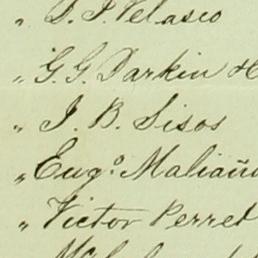 " D. P. Velasco
" G. G. Darkin &
" J. B. Sisos
" Eug.º Maliañ
" Victor Perret